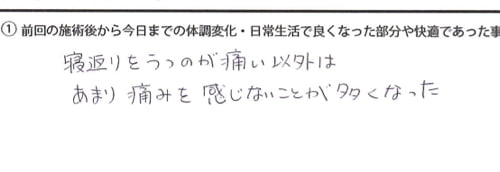 ① 前回の施術後から今日までの体調変化・日常生活で良くなった部分や快適であった事
寝返りをうつのが痛い以外は
あまり痛みを感じないことが多くなった